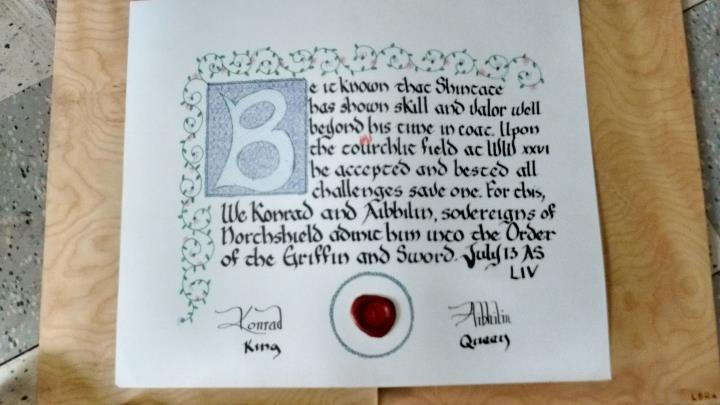 Be it known that Shintate
has shown skill and valor well
beyond his time in coat. Upon
the tourchlit field at WW XXVI
he accepted and bested all
challenges save one. For this,
We Konrad and Aibhilin, sovereigns of
Northshield admit him into the Order
of the Griffin and Sword. July 13 AS
LIV
Konrad
King
Aibhilin
Queen